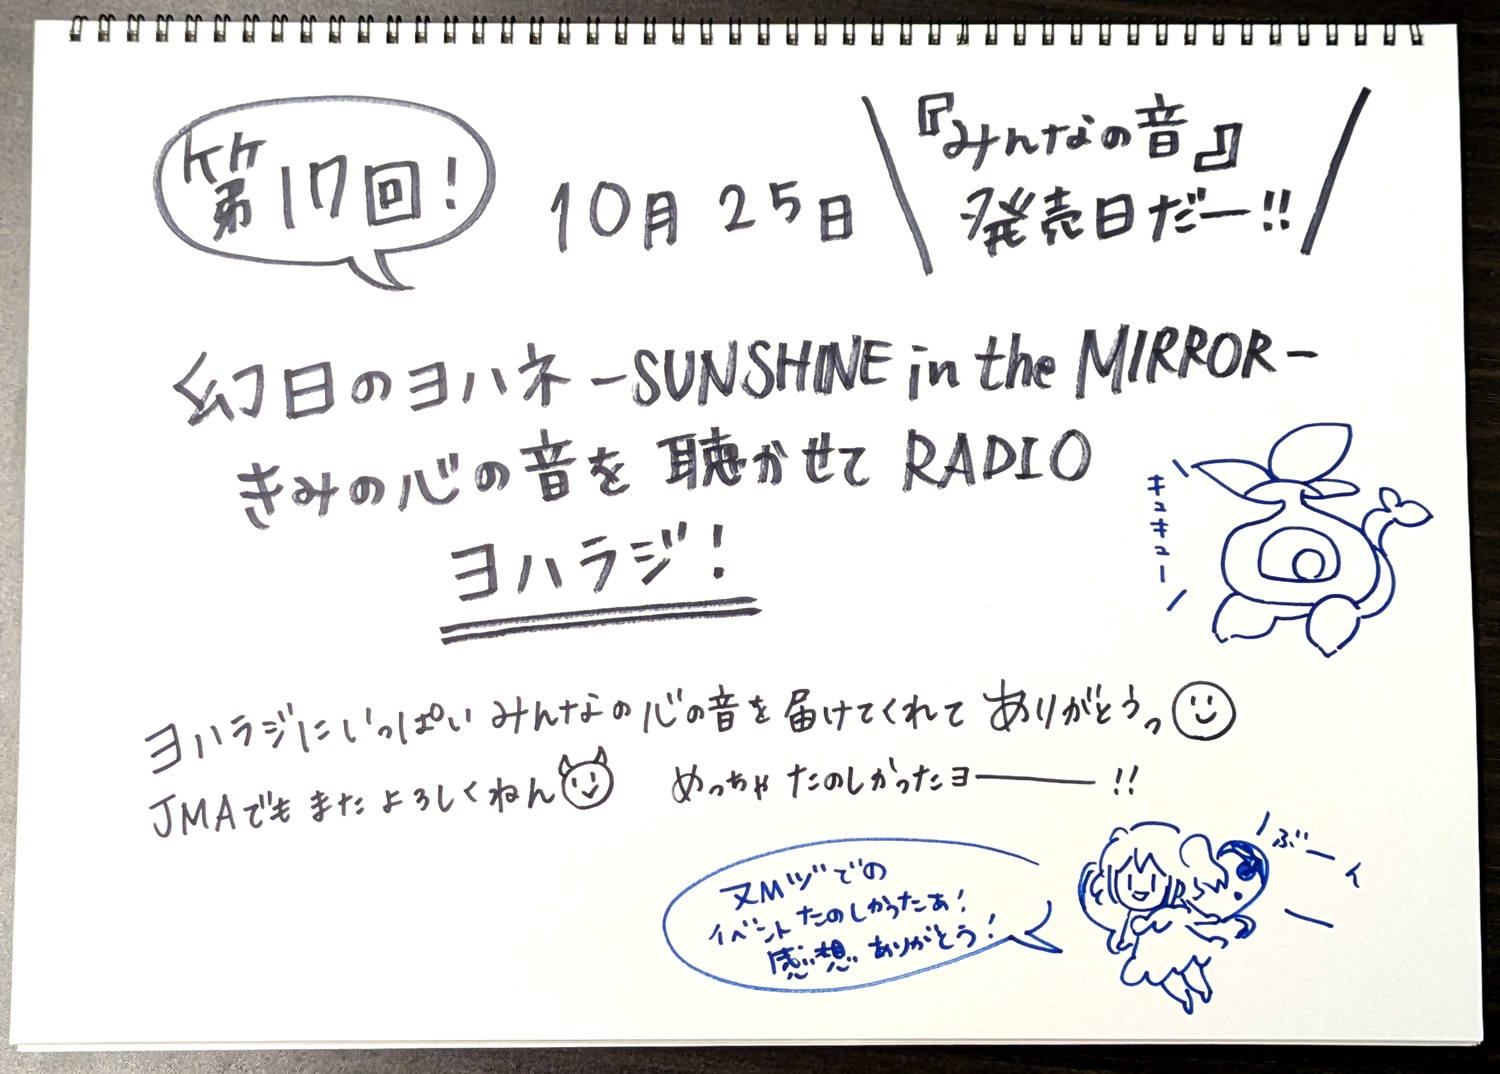 第17回!
10月25日
『みんなの音』
発売日だー!!
幻日のヨハネ-SUNSHINE in the MIRROR-
きみの心の音を聴かせて RADIO
ヨハラジ!
キュキュー
ヨハラジにいっぱいみんなの心の音を届けてくれて ありがとうっ
JMAでもまたよろしくねん めっちゃたのしかったヨー!!
ヌMヅでの
イベントたのしかったぁ!
感想ありがとう!
ぶーん